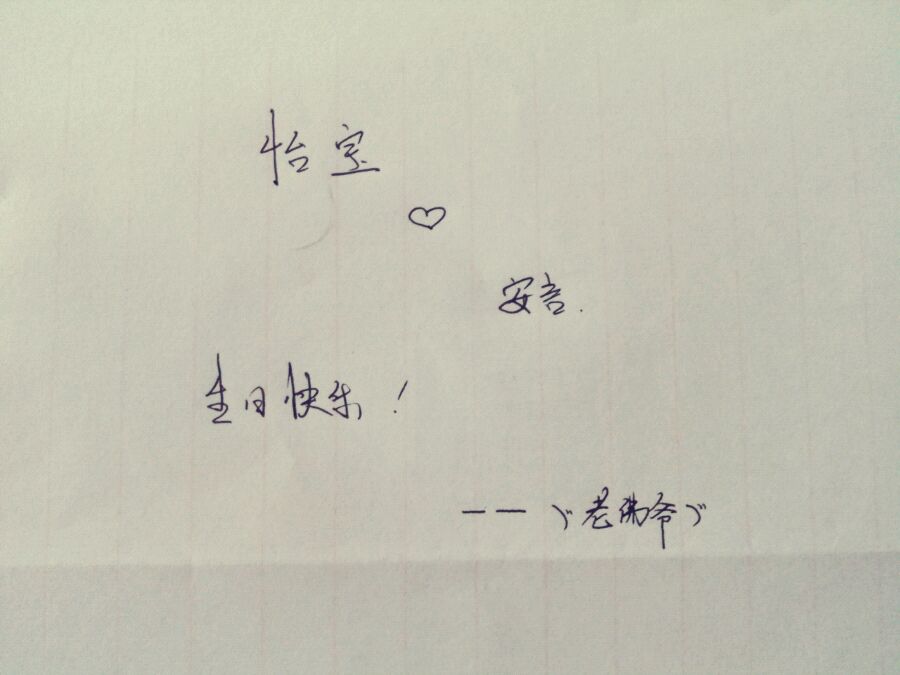 怡宝
♡
安言.
生日快乐!
——"老佛爷"